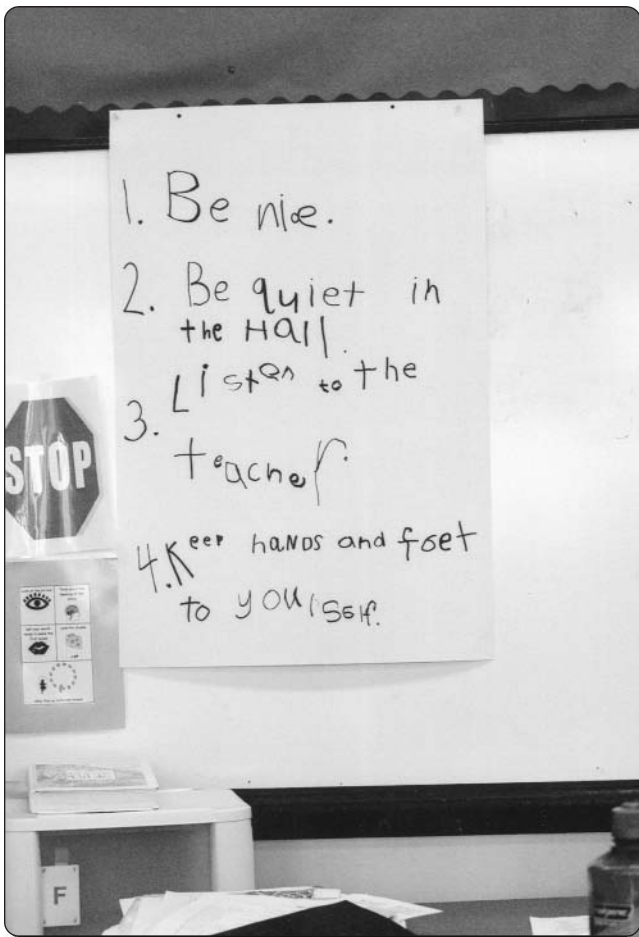 1. Be nice.
2. Be quiet in
the Hall.
3. Listen to the
teacher.
4. Keep hands and feet
to yourself.
STOP
F